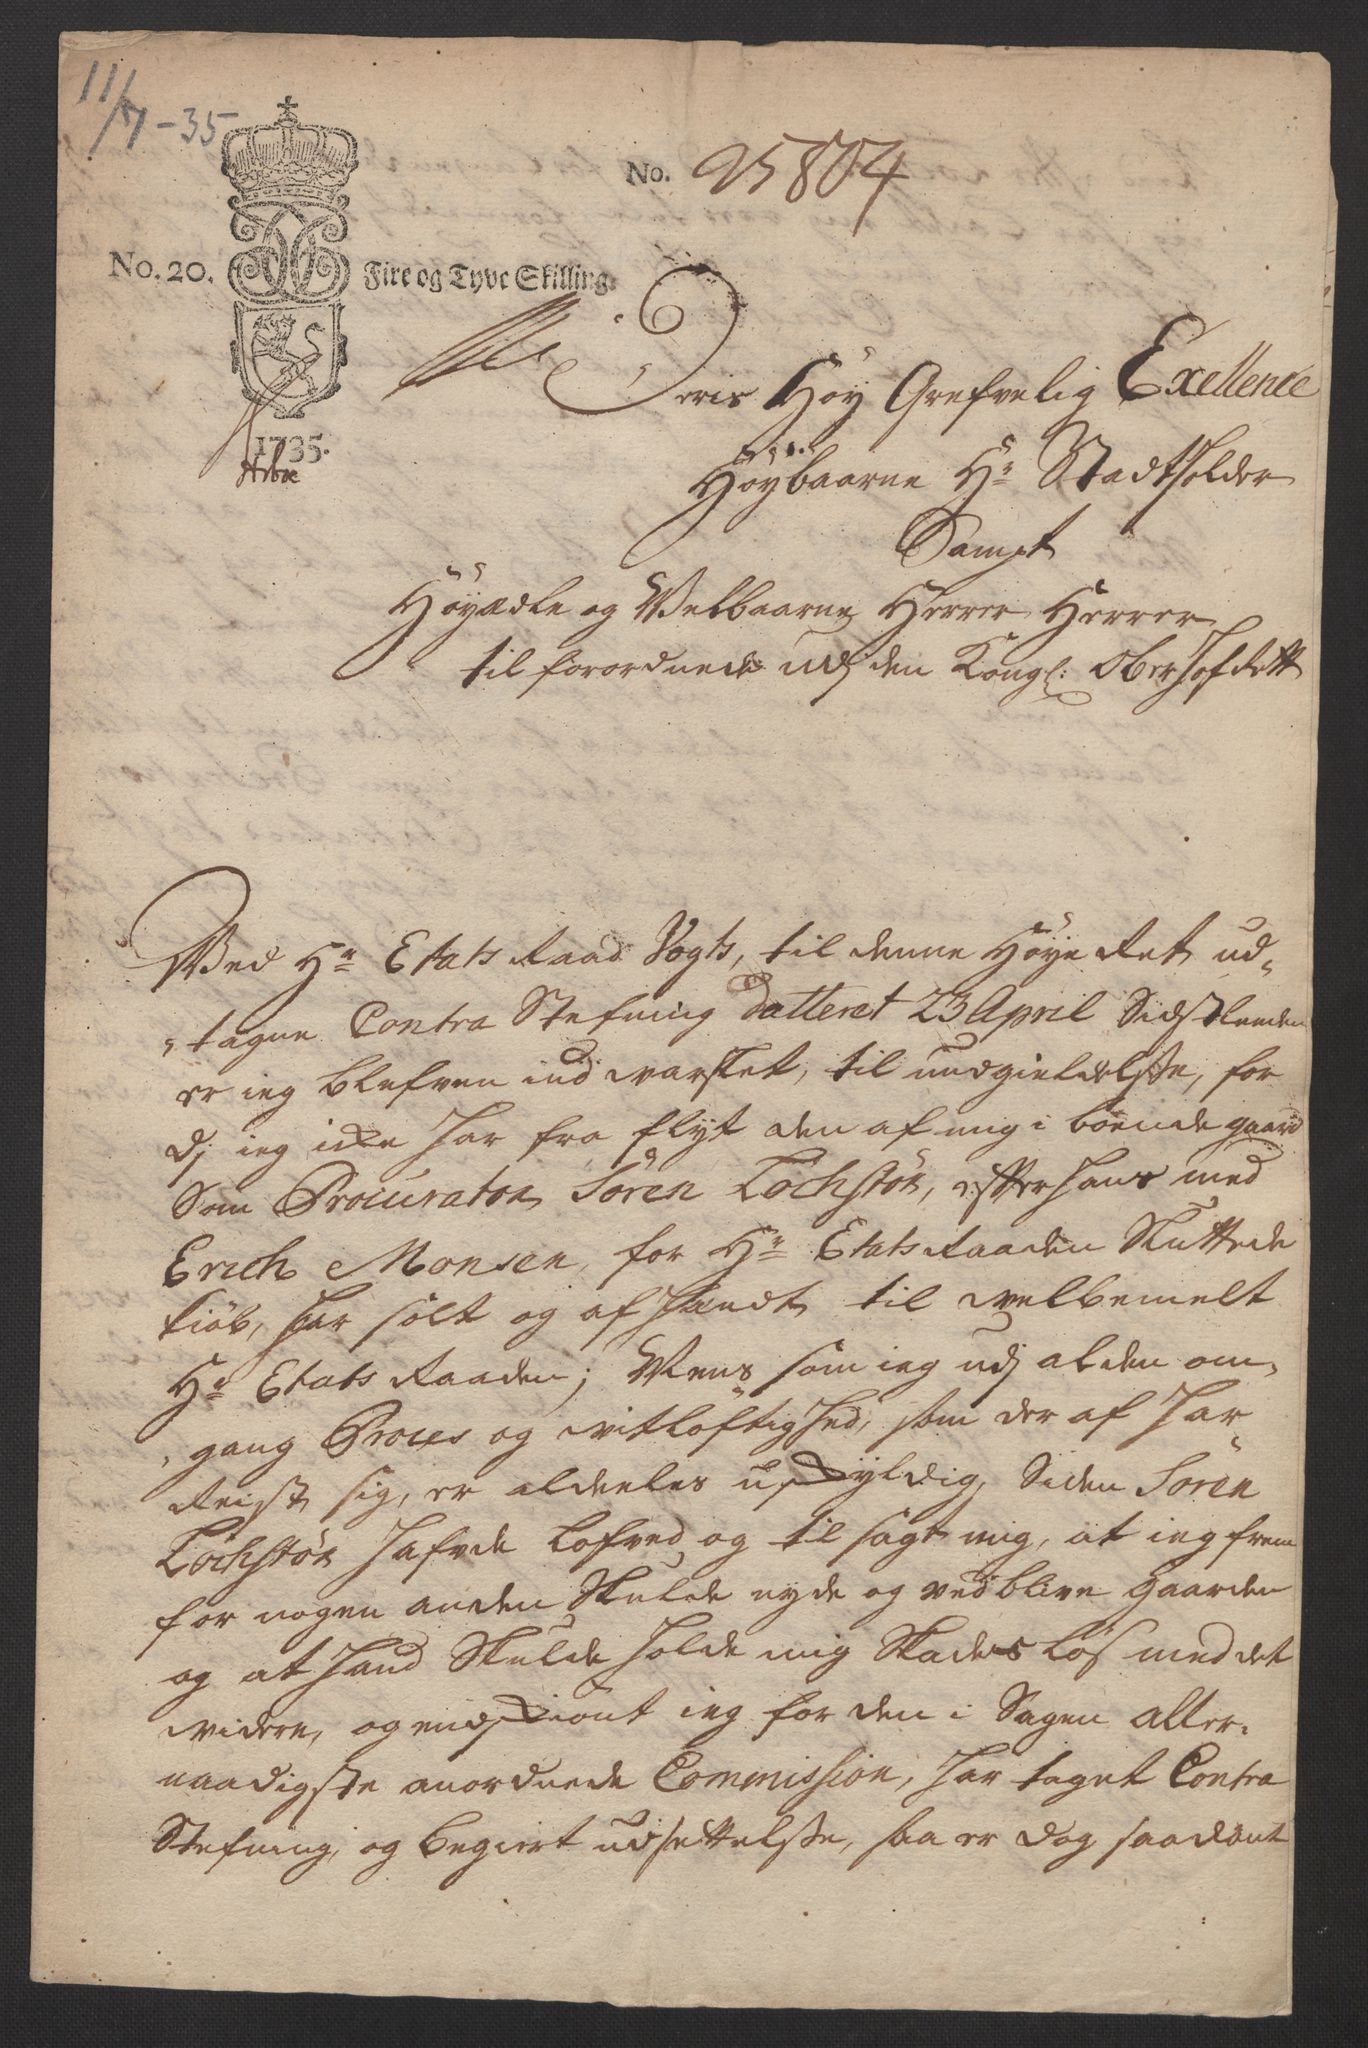 11/7-35
No. 25804
No. 20. Fire og Tyve Skilling.
1735.
Arboe
Deris Høy Grefvelig Exellence
Høybaarne Hr Stadtholder
Sampt
Høyædle og Welbaarne Herrer Herrer
til forordnede udj den Kongl: OberHofRett
Wed Hr Etats Raad Vogts, til denne Høye Ret ud,,
,,tagne Contra Stefning Datteret 23 April Sidstleeden
er ieg blefven ind warslet, til undgieldelsse, for
dj ieg icke har fra flyt den af mig i boende gaard
Som Procurator Sören Lochstör, efter hans med
Erich Monsen, for Hr Etats Raaden Sluttede
kiöb, har solt og af hændt til welbemelt
Hr Etats Raaden; Mens som ieg udj al den om,,
,,gang Proces og witløftighed, som der af har
Reist sig, er aldeeles uskyldig, Siden Sören
Lochstör hafde lofved og til sagt mig, at ieg frem
for nogen anden Skulde nyde og ved blive gaarden
og at hand Skulde holde mig Skades løs med det
widere, og endskiönt ieg for den i Sagen aller,,
naadigste anordnede Commission, har taget Contra
Stefning, og begiert udsettelsse, saa er dog saadant